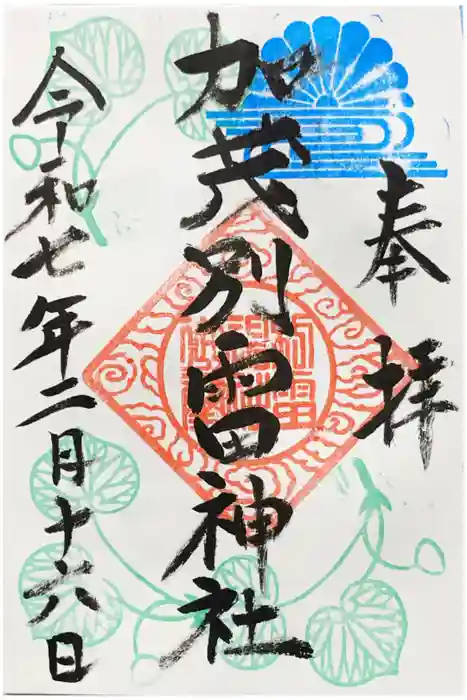 奉拝
加茂別雷神社
令和七年二月十六日